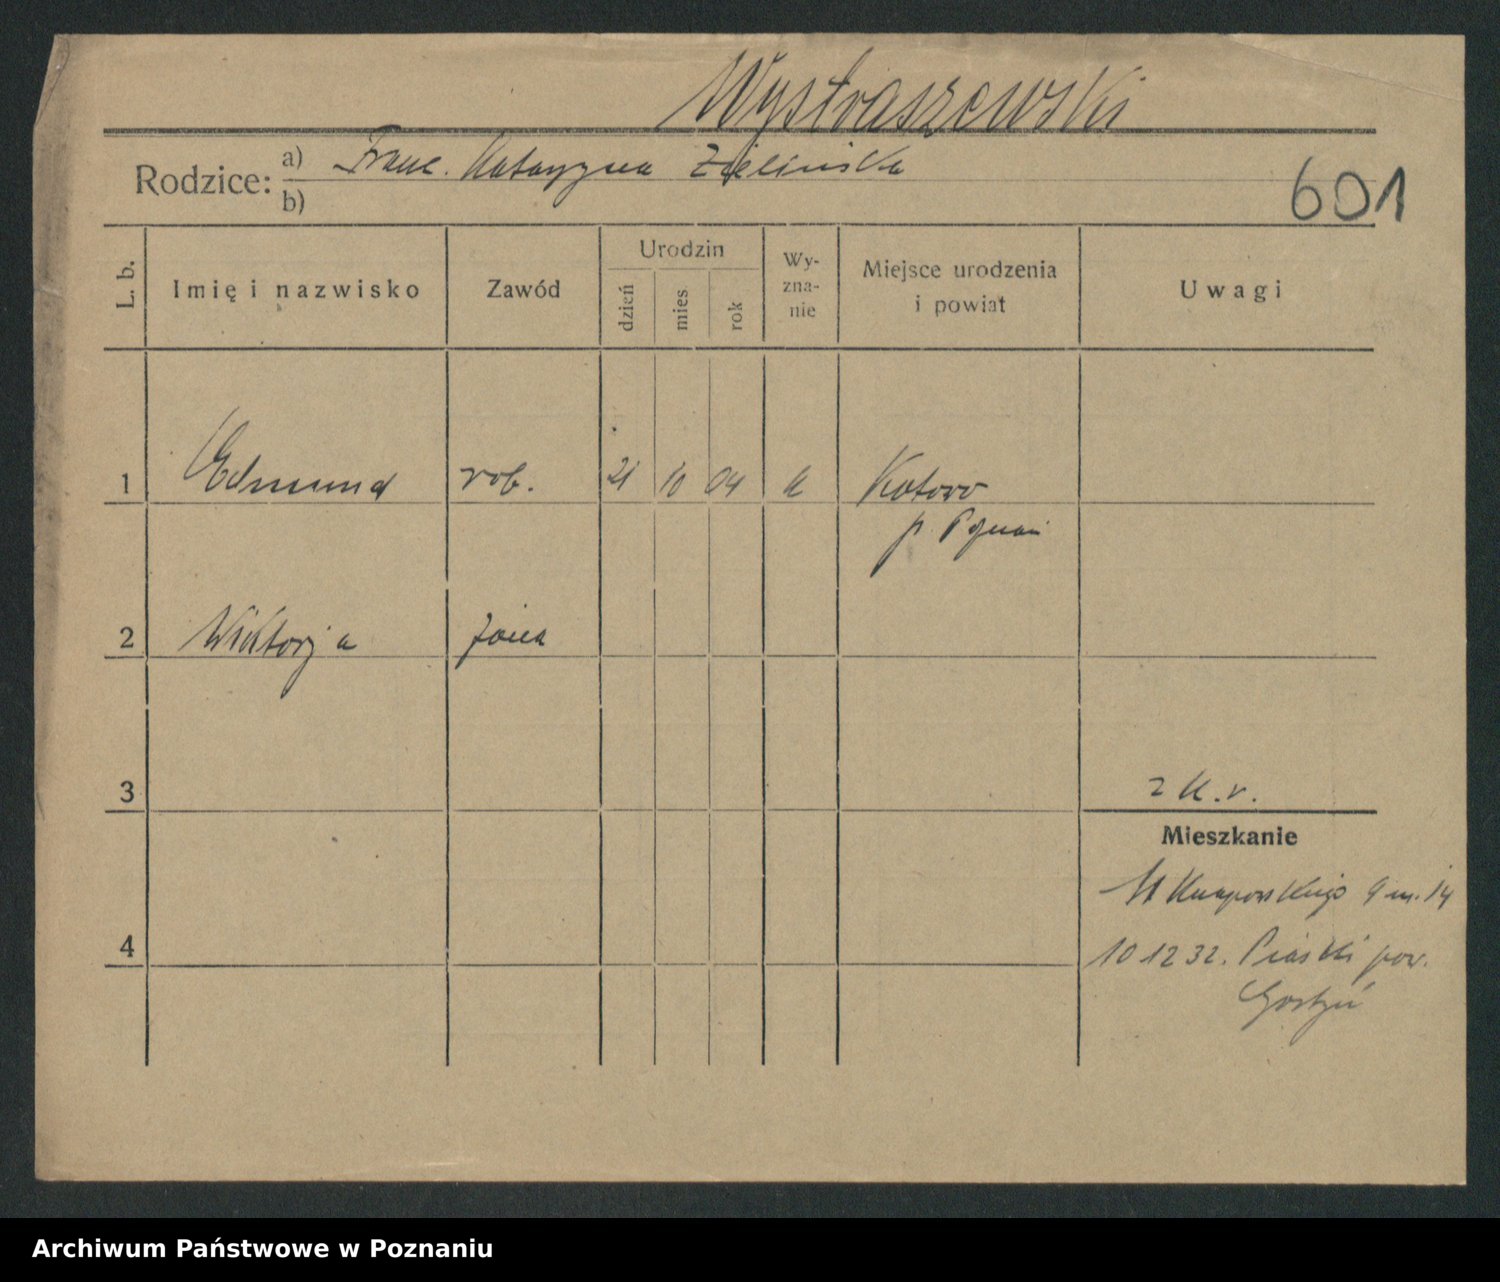 Wystraszewski
Rodzice: a) Franc. Katarzyna Zielińska
b)
601
L. b.
Imię i nazwisko
Zawód
Urodzin
dzień
mies
rok
Wy-
zna-
nie
Miejsce urodzenia
i powiat
Uwagi
1 Edmund rob. 21 10 04 k Kotowo
p. Poznań
2 Wiktorja żona
3
z k. r.
Mieszkanie
Knapowskiego 9 m. 14
4
10 12 32. Piaski pow.
Gostyń
Archiwum Państwowe w Poznaniu